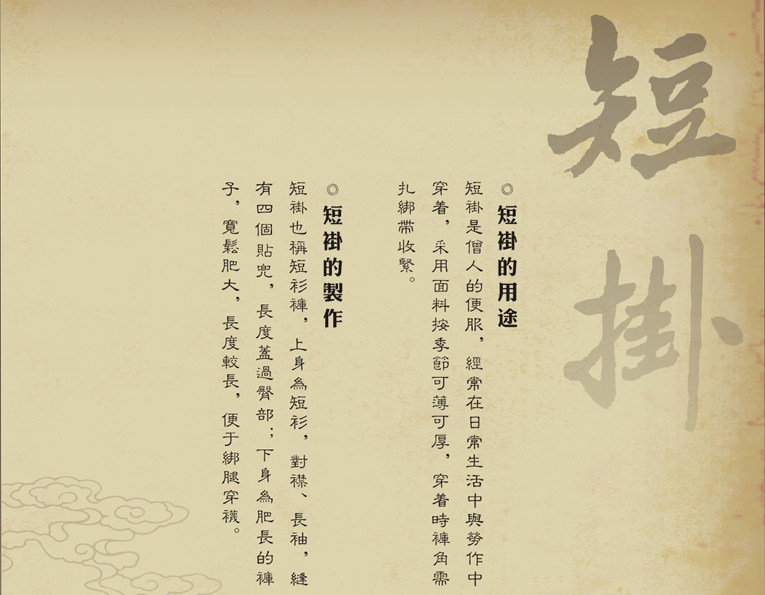 短掛
◎短褂的用途
短褂是僧人的便服，經常在日常生活中與勞作中
穿着，采用面料按季節可薄可厚，穿着時褲角需
扎綁帶收緊。
◎短褂的製作
短褂也稱短衫褲，上身為短衫，對襟、長袖，縫
有四個貼兜，長度蓋過臀部；下身為肥長的褲
子，寬鬆肥大，長度較長，便于綁腿穿襪。